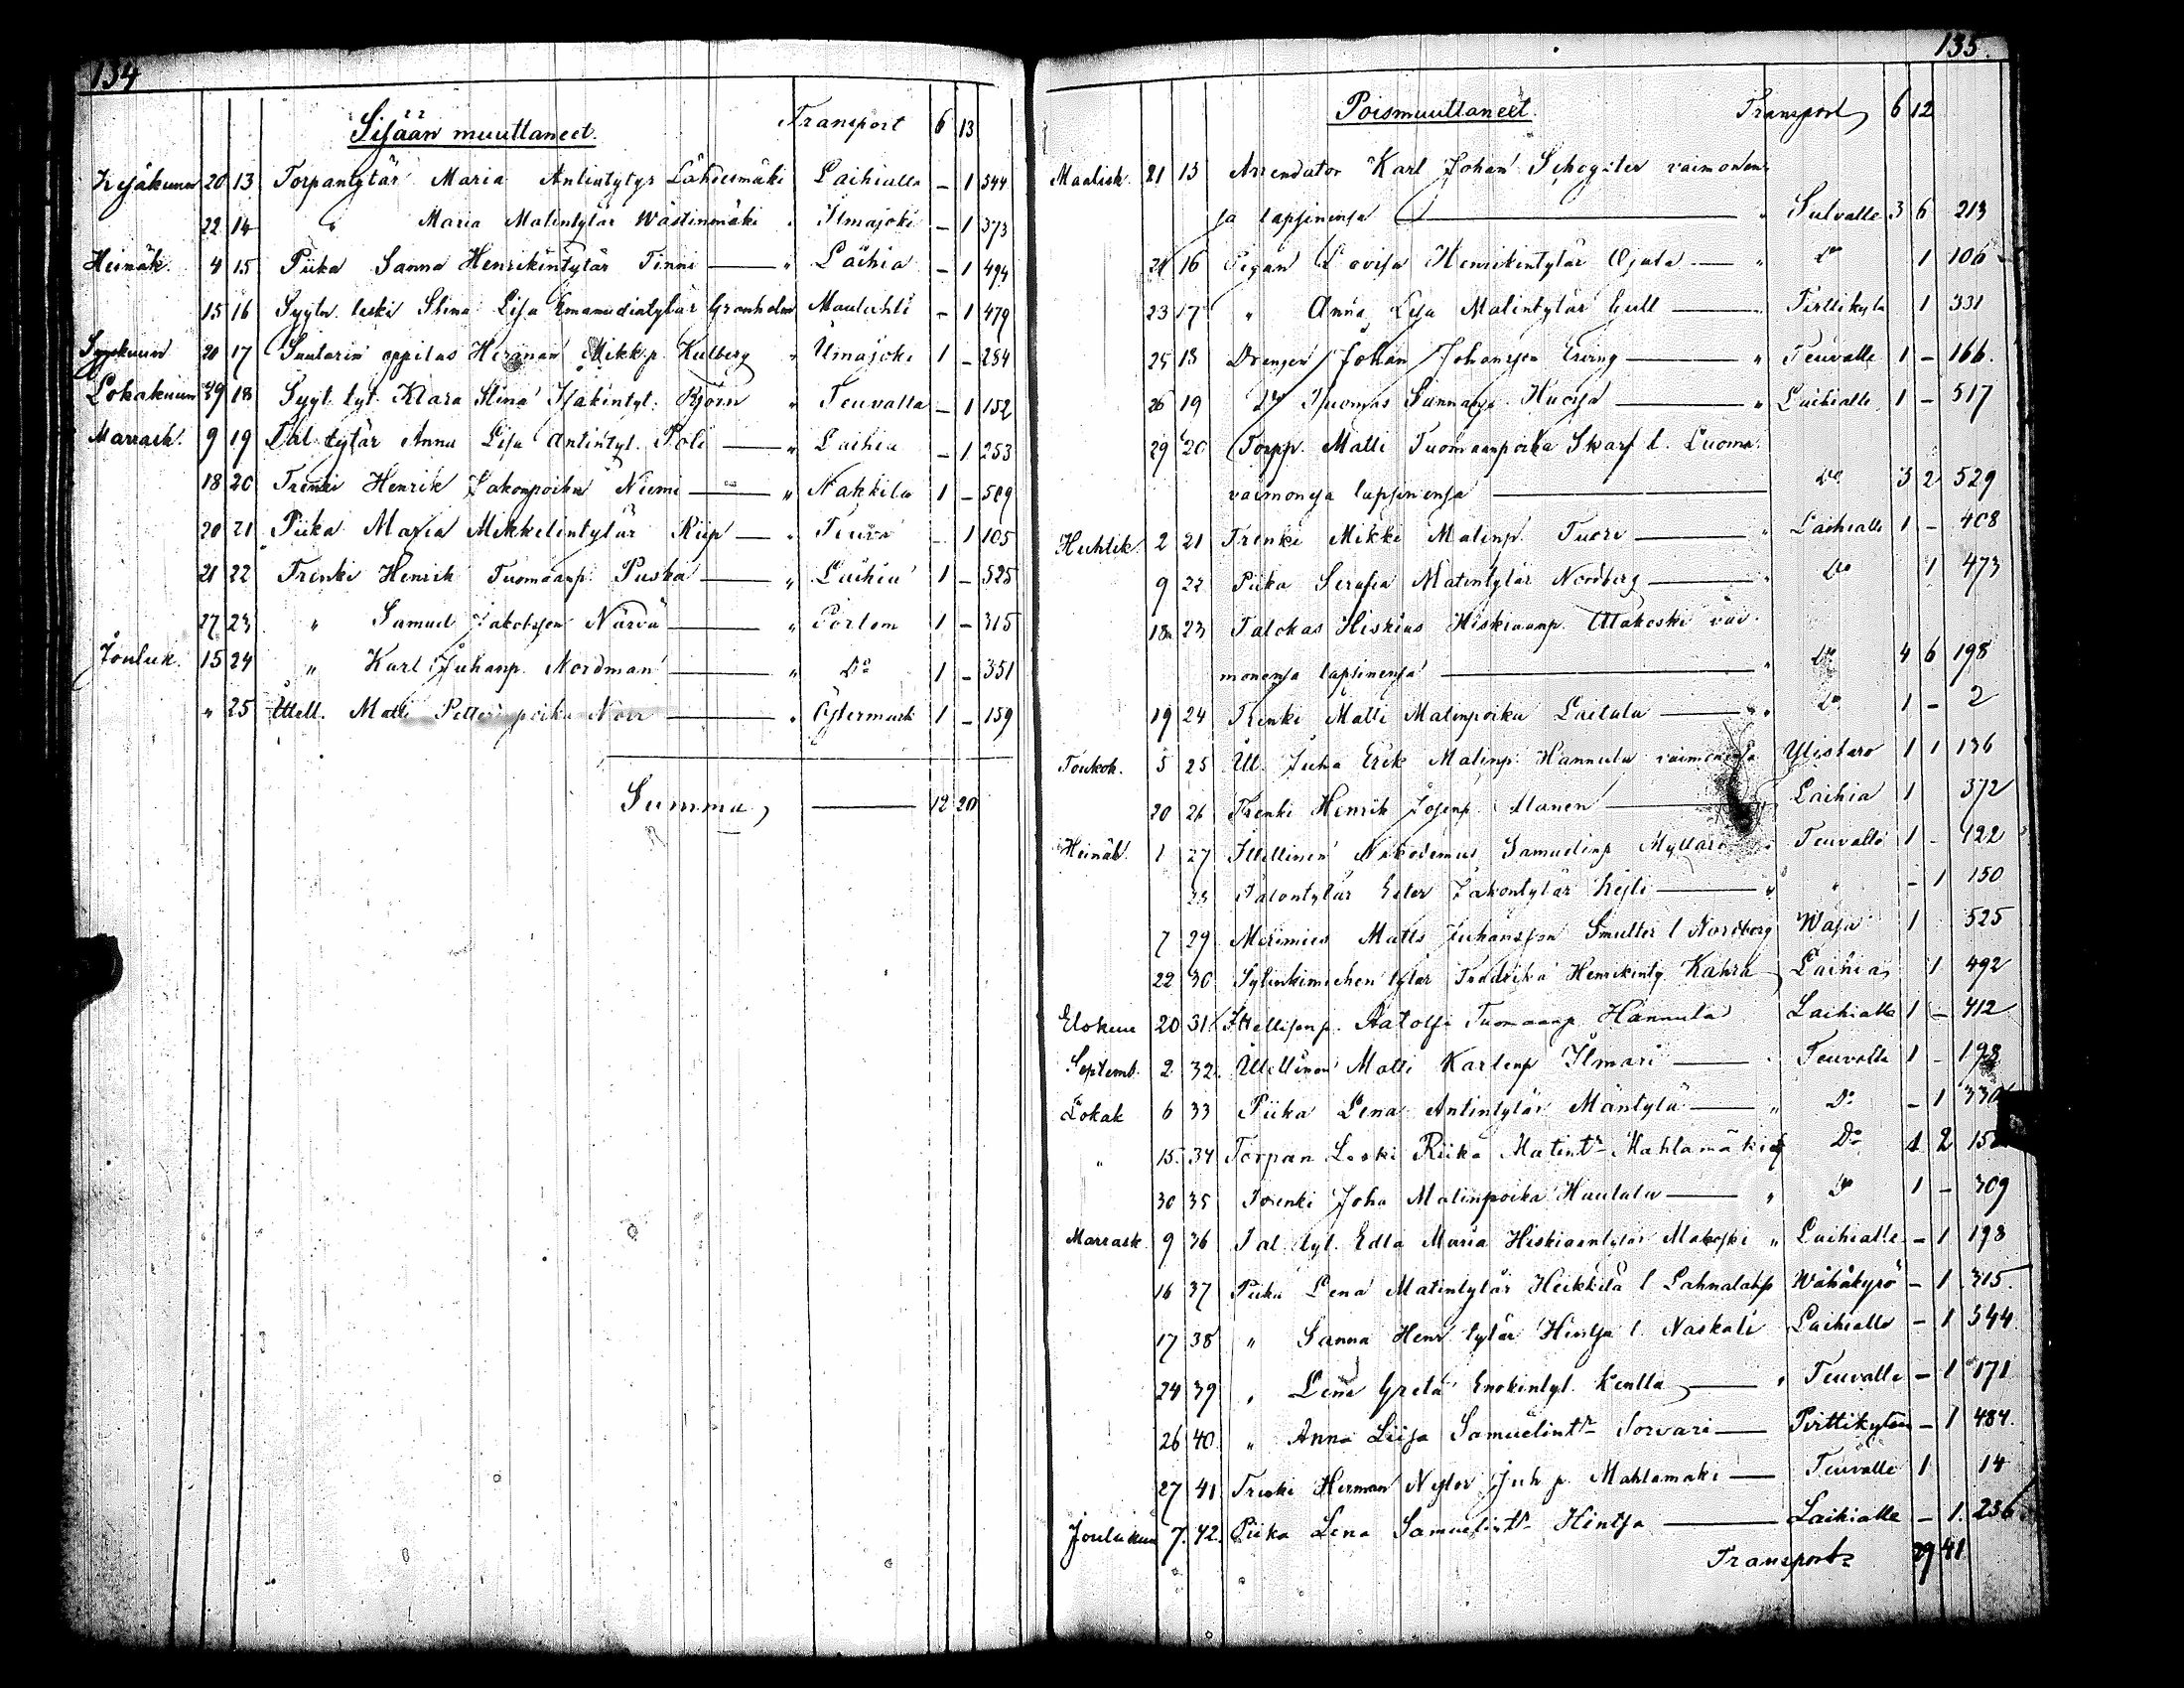 134
Sisään muuttaneet. Transport 6 13
Kesäkuun 20 13 Torpantytär Maria Antintytär Lähdesmäki Laihialta - 1 344
22 14 " Maria Matintytär Wästinmäki " Ilmajoki - 1 373
Heinäk. 4 15 Piika Sanna Henrikintytär Tinni " Laihia - 1 494
15 16 Sytn. leski Stina Lisa Emanuelintytär Granholm - 1 479
Syyskuun 20 17 Suutarin oppilas Herman Mikk.p. Kulberg " Ilmajoki 1 - 284
Lokakuun 29 18 Sygt. tyt. Klara Stina Isakintyt. Björn " Teuvalta - 1 152
Marrask. 9 19 Tal. tytär Anna Lisa Antintyt. Poli " Laihia - 1 253
18 20 Trenki Henrik Jakonpoika Niemi " Nakkila 1 - 509
20 21 Piika Maria Mikkelintytär Riip " Teuva - 1 105
21 22 Trenki Henrik Tuomaanp. Puska " Laihia 1 - 525
27 23 " Samuel Jakobsson Närvä " Pörtom 1 - 315
Jouluk. 15 24 " Karl Juhanp. Nordman " Do 1 - 351
" 25 Ittell. Matti Petterinpoika Norr " Östermark 1 - 159
Summa, 12 20
135.
Poismuuttaneet. Transport, 6 12
Maalisk. 21 15 Arrendator Karl Johan vaimonens
ja lapsinensa " Sulvalle 3 6 213
21 16 Pigan Lovisa Henrikintytär Ojala " Do 1 106
23 17 " Anna Lisa Matintytär Gull " Pirttikylä 1 331
25 18 Drengen Johan Johansson Erving " Teuvalle 1 - 166.
26 19 Do Tuomas " Laihialle 1 - 517
29 20 Torpp. Matti Tuomaanpoika Skarf l. Luoma
vaimonsa lapsinensa Do 3 2 529
Huhtik. 2 21 Trenki Mikki Matinp. Tuori " Laihialle 1 - 408
9 22 Piika Serafia Matintytär Nordberg " Do 1 473
18 23 Talokas Hiskias Hiskiaanp. Makoski vai-
monensa lapsinensa " Do 4 6 198
19 24 Trenki Matti Matinpoika Laitala " Do 1 - 2
Toukok. 5 25 Itt. Juha Erik Matinp. Hannula vaimonensa Ylistaro 1 1 136
20 26 Trenki Henrik Josenp. Alanen Laihia 1 372
Heinäk. 1 27 Itellinen Nikodemus Samuelinp. Myllari " Teuvalle 1 - 122
28 Talontytär Ester Jakontytär Kesti " " - 1 150
7 29 Merimies Matts Juhansson Smulter l. Nordberg Wasa 1 525
22 30 tytär Fredrika Henrikinty. Kahra Laihia, 1 492
Elokuu 20 31 Ittellisenp. Aatolfi Tuomaanp. Hannula Laihialle 1 - 412
Septemb. 2 32. Itellinen Matti Karlenp. Ilmari " Teuvalle 1 - 198
Lokak 6 33 Piika Lena Antintytär Mäntylä " Do - 1 330
" 15. 34 Torpan Leski Riika Matintr Mahlamäki Do 1 2
30 35 Trenki Joha Matinpoika Hautala " Do 1 - 309
Marrask. 9 36 Tal. tyt. Edla Maria Hiskiaantytär Makoski " Laihialle - 1 198
16 37 Piika Lena Matintytär Heikkilä l. Wähäkyrö - 1 315.
17 38 " Sanna Henr. tytär Hintsa l. Naskali Laihialle - 1 344
24 39 " Lena Greta Enokintyt. Kentta " Teuvalle - 1 171
26 40. " Anna Liisa Samuelintr Sorvari Pirttikylän - 1 484.
27 41 Trenki Herman Nestor Juh.p. Mahlamäki Teuvalle 1 14
Joulukuu 7. 42. Piika Lena Samuelintr Hintsa Laihialle - 1. 236
Transport 29 41